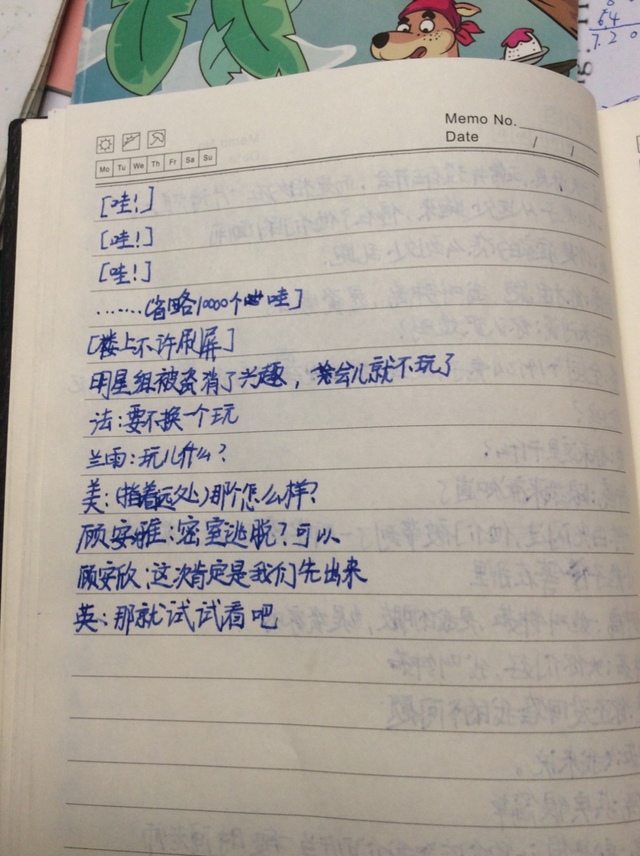 64
7.20
Memo No.
Date / /
Mo Tu We Th Fr Sa Su
[哇!]
[哇!]
[哇!]
.......(省略10000个哇]
[楼上不许刷屏]
明星组被盗消了兴趣,会儿就不玩了
法:要不换一个玩
兰雨:玩儿什么?
美:(指着远处)那个怎么样?
顾安雅:密室逃脱?可以
顾安欣:这次肯定是我们先出来
英:那就试试看吧